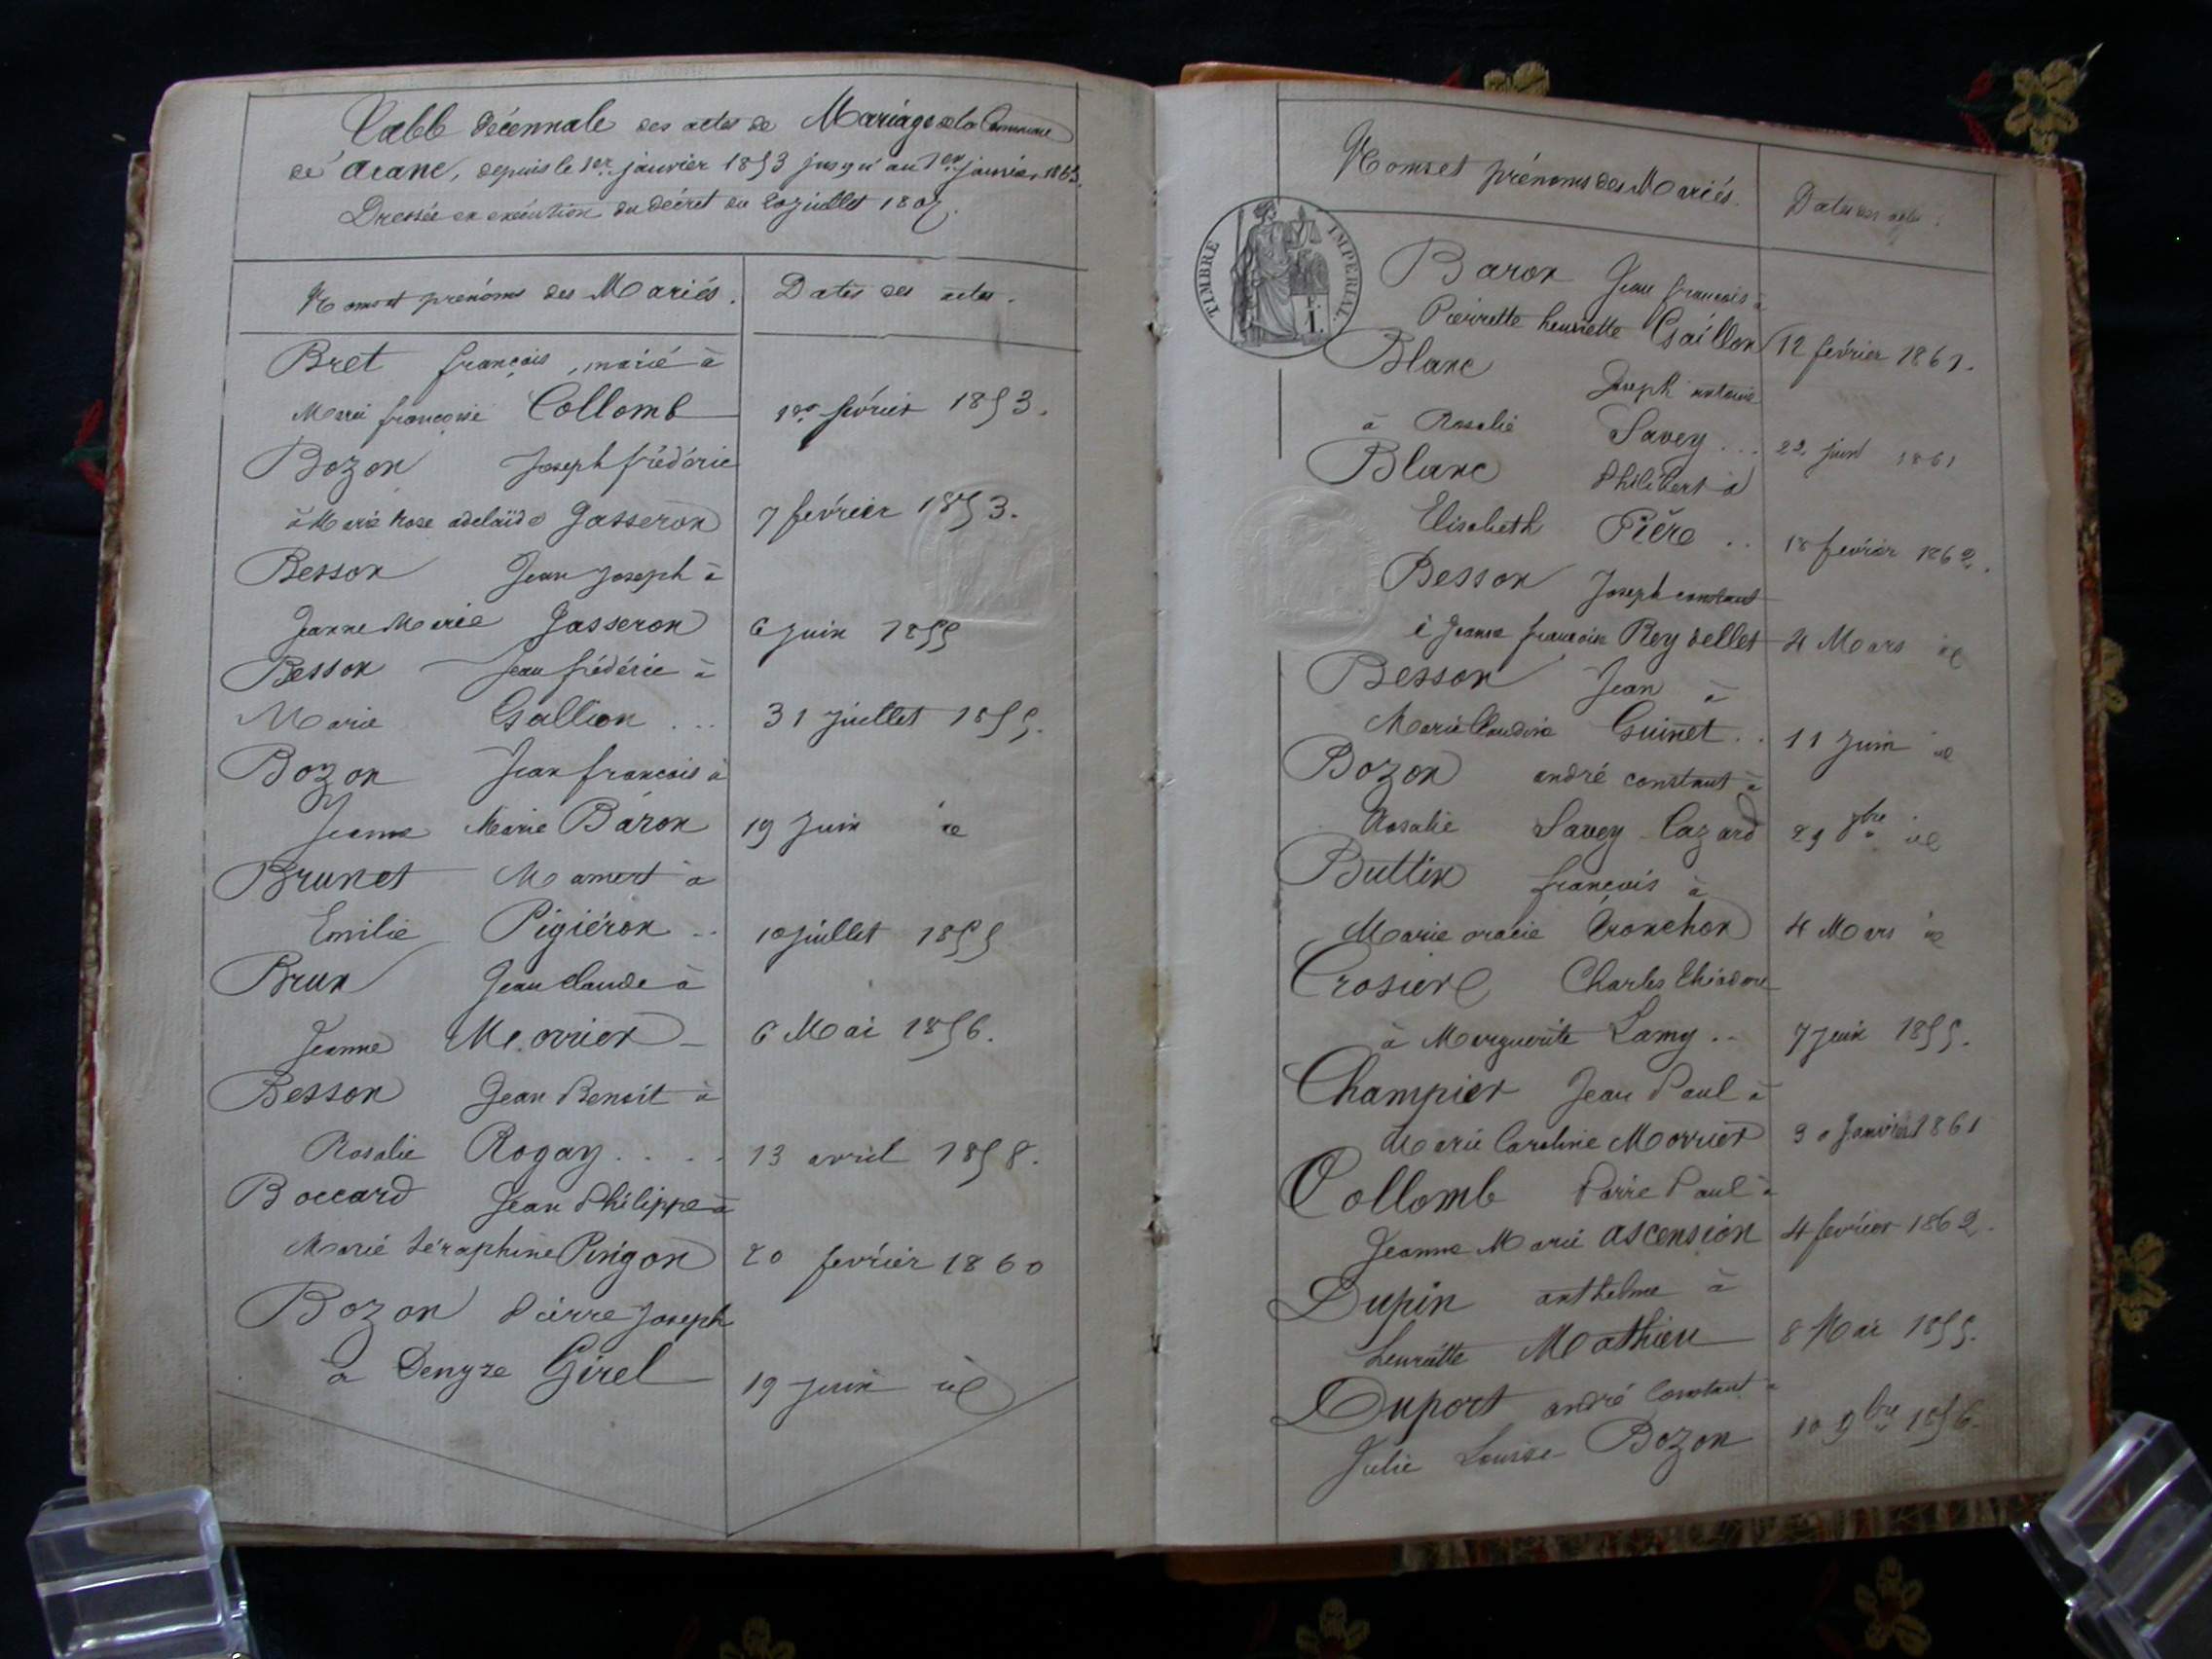 Table décennale des actes de Mariage de la Commune
de arane, depuis le 1er janvier 1853 jusqu'au 1er janvier 1863.
Dressée en exécution du décret du 20 juillet 1807.
Noms et prénoms des Mariés. Dates des actes.
Bret françois, marié à
Marie françoise Collomb février 1853.
Bozon Joseph frédéric
à Marie Rose adelaïde Gasseron 7 fevrier 1853.
Besson Jean Joseph à
Jeanne Marie Gasseron 6 Juin 1855
Besson Jean frédéric à
Marie Gallion ... 31 juillet 1855.
Bozon Jean francois à
Jeanne Marie Baron 19 Juin id
Brunet Mamert à
Emilie Pigiéron .. 10 juillet 1855
Brun Jean claude à
Jeanne Morrier 6 Mai 1856.
Besson Jean Benoit à
Rosalie Rogay .... 13 avril 1858.
Boccard Jean Philippe à
Marie Séraphine Pingon 20 fevrier 1860
Bozon Pierre Joseph
à Denyze Girel 19 juin id
Noms et prénoms des Mariés. Dates des actes.
TIMBRE IMPERIAL.
Baron Jean francois à
Pierrette henriette Gaillon 12 février 1861.
Blanc Joseph antoine
à Rosalie Savey ... 22 juin 1861
Blanc Philibert à
Elisabeth Pière .. 18 fevrier 1862.
Besson Joseph constant
à Jeanne francoise Reydellet 4 Mars id
Besson Jean à
Marie Claudine Guinet .. 11 Juin id
Bozon andré constant à
Rosalie Savey-Cazard 29 id
Buttin françois à
Marie Tronchon 4 Mars id
Crosier Charles théodore
à Marguerite Lamy .. 7 Juin 1855.
Champier Jean Paul à
Marie Caroline Morrier 30 Janvier 1861
Collomb Pierre Paul à
Jeanne Marie ascension 4 février 1862.
Dupin anthelme à
henriette Mathieu 8 Mai 1855.
Duport andré Constant à
Julie Louise Bozon 10 9bre 1856.